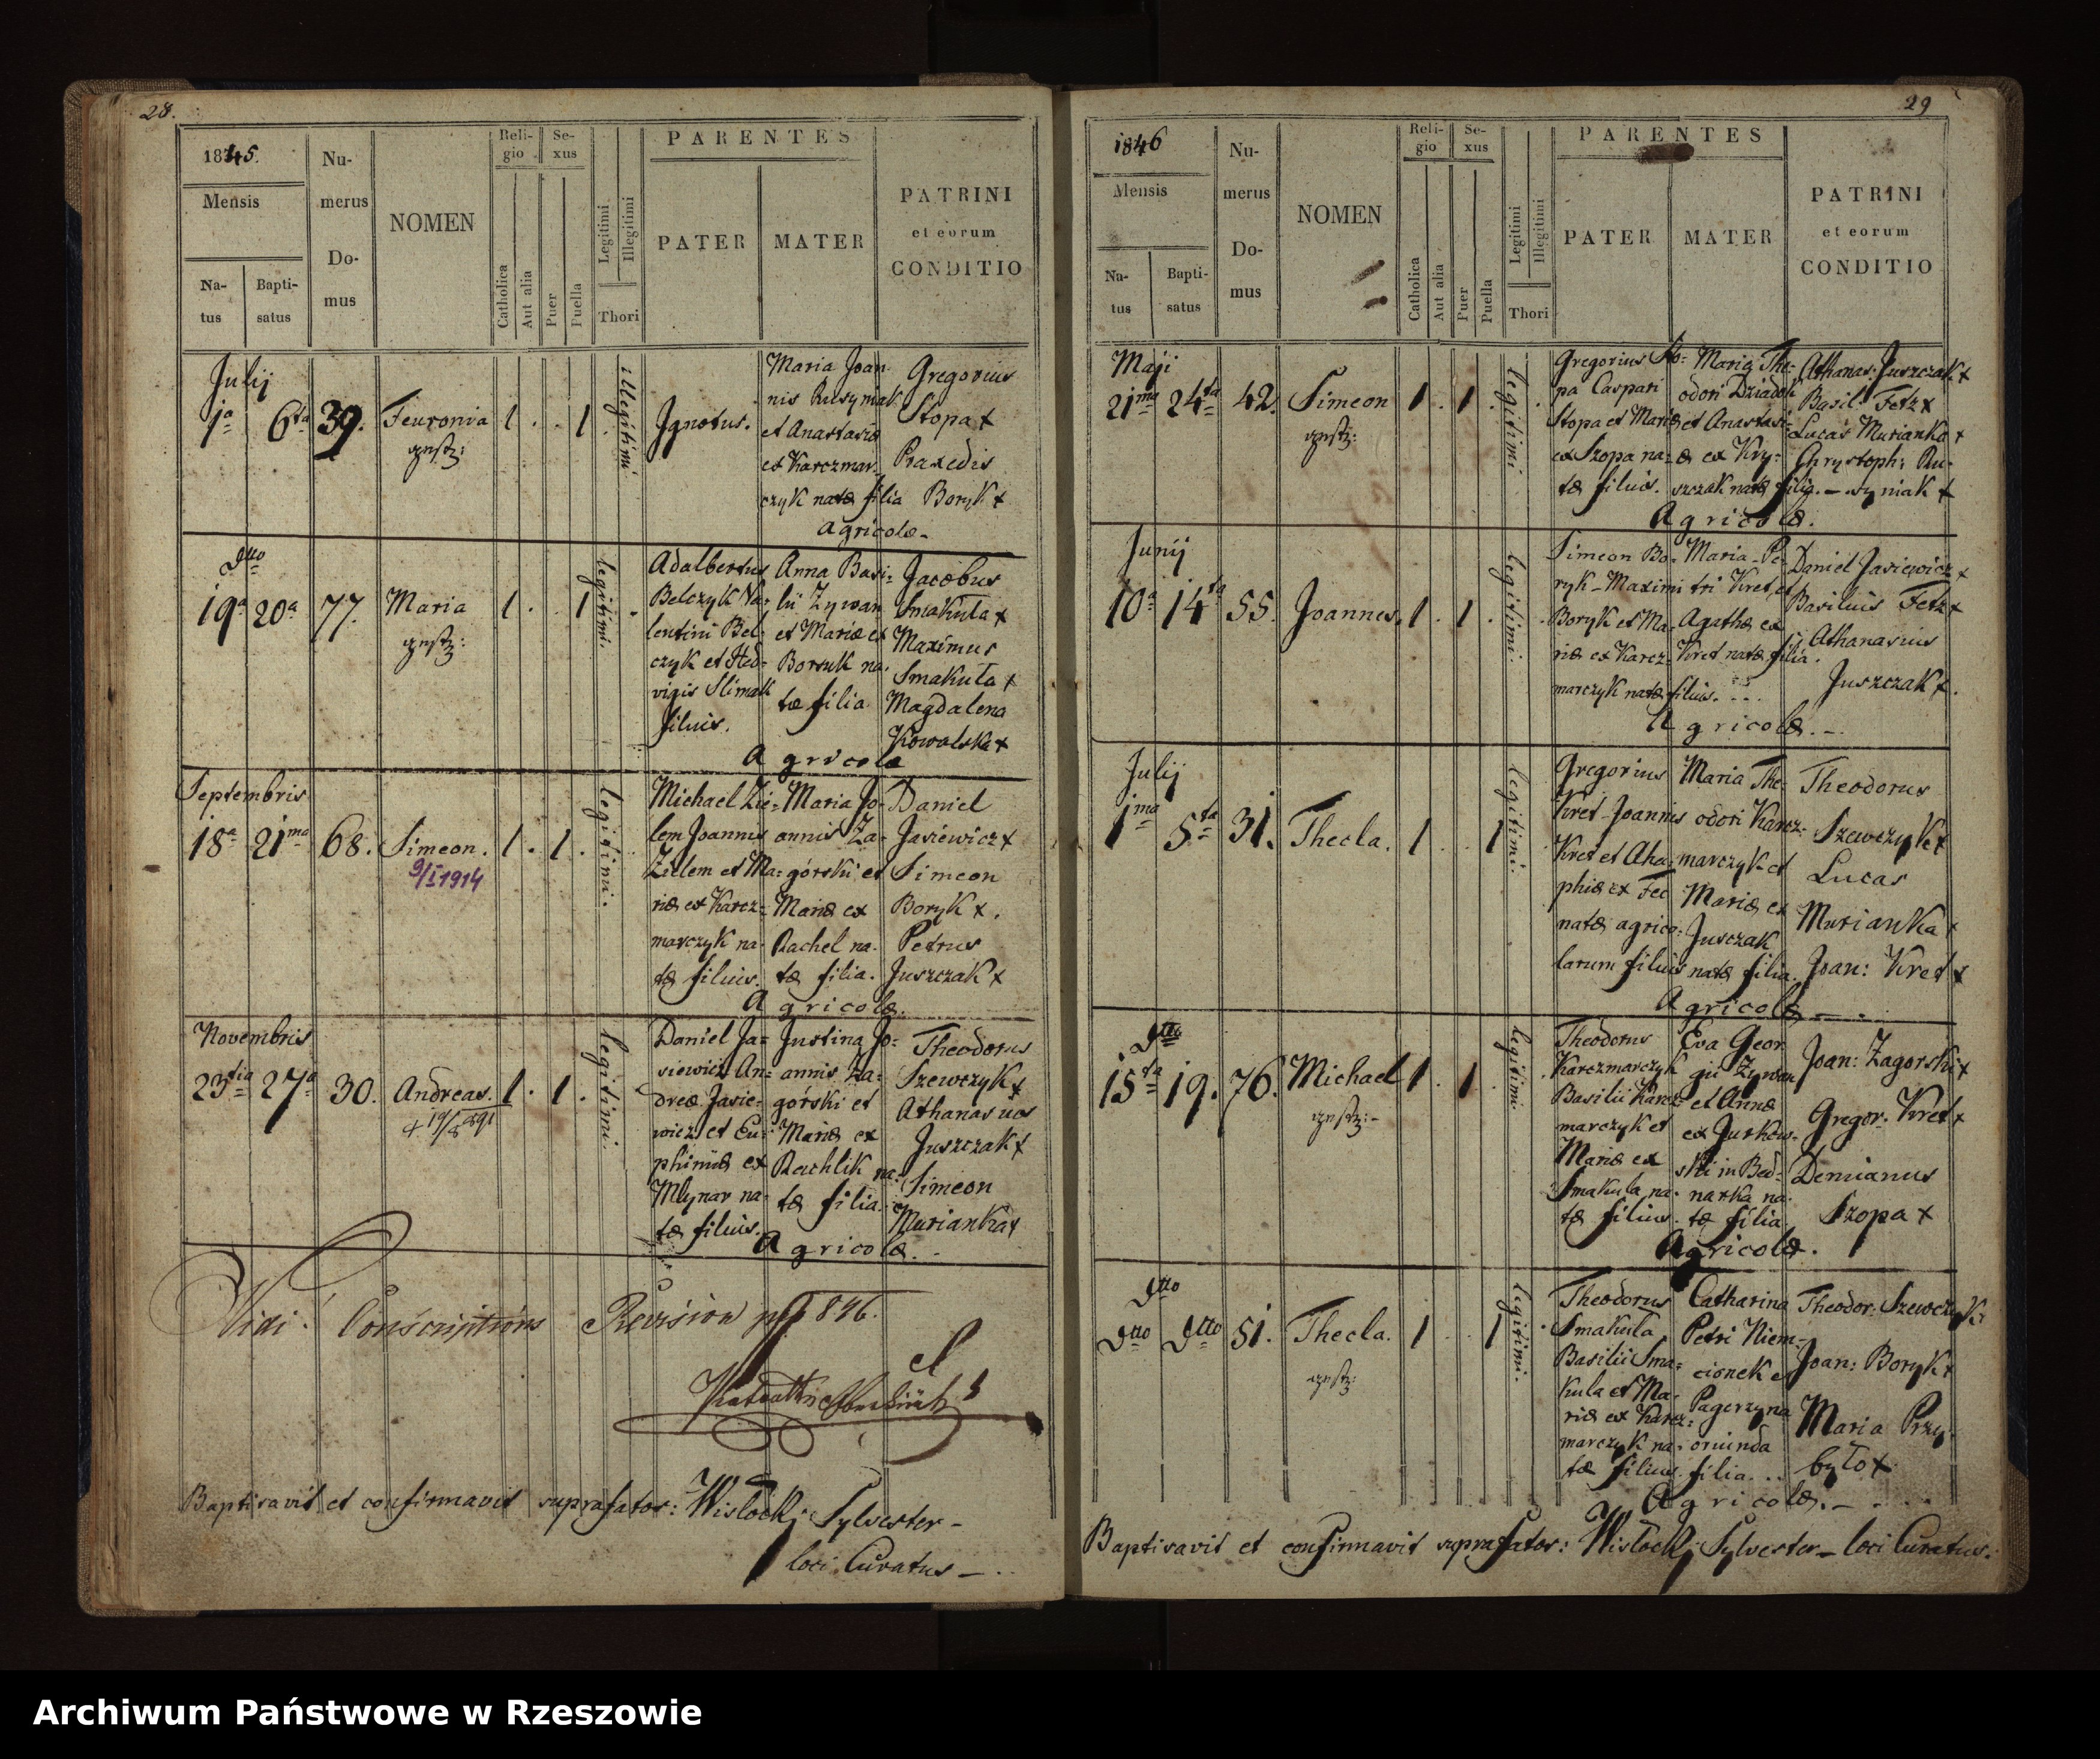 28.
1845.
Mensis
Na-
tus
Bapti-
satus
Nu-
merus
Do-
mus
NOMEN
Reli-
gio
Catholica
Aut alia
Se-
xus
Puer
Puella
Legitimi
Illegitimi
Thori
PARENTES
PATER
MATER
PATRINI
et eorum
CONDITIO
Julij
1a 6ta 39. Feuronia 1 . . 1 . illegitimi
Ignotus.
Maria Joan
nis Rusyniak
et Anastasiæ
ex Karczmar-
czyk natæ filia
Gregorius
Stopa +
Praxedis
Boryk +
Agricolæ-
dtto
19a 20a 77. Maria 1 . 1 legitimi.
Adalbertus
Belczyk Va-
lentini Bel-
czyk et Hed-
vigis Slimak
filius.
Anna Basi-
lii Zywan
et Mariæ ex
Borsuk na-
tæ filia
Jacobus
Smakuła +
Maximus
Smakuła +
Magdalena
Kowalska +
Agricolæ
Septembris
18a 21ma 68. Simeon. 1 . 1 . legitimi.
9/I 1914
Michael Zie-
lem Joannis
Zielem et Ma-
riæ ex Karcz-
marczyk na-
tæ filius.
Maria Jo-
annis Za-
górski et
Mariæ ex
Rachel na-
tæ filia.
Daniel
Jasiewicz +
Simeon
Boryk +.
Petrus
Juszczak +
Agricolæ.
Novembris
23tia 27a 30. Andreas. 1 . 1 . legitimi.
Daniel Ja-
siewicz An-
dreæ Jasie-
wicz et Eu-
phimiæ ex
Mlynar na-
tæ filius.
Justina Jo-
annis Za-
górski et
Mariæ ex
Rachlik na-
tæ filia.
Theodorus
Szewczyk +
Athanasius
Juszczak +
Simeon
Murianka +
Agricolæ.
Vidi! Conscriptions Revision 846.
Baptisavit et confirmavit suprafator: Wisłocki Sylvester-
loci Curatus-
29
1846
Mensis
Na-
tus
Bapti-
satus
Nu-
merus
Do-
mus
NOMEN
Reli-
gio
Catholica
Aut alia
Se-
xus
Puer
Puella
Legitimi
Illegitimi
Thori
PARENTES
PATER
MATER
PATRINI
et eorum
CONDITIO
Maji
21ma 24ta 42. Simeon 1 . 1 . legitimi
Gregorius Sto-
pa Caspari
Stopa et Mariæ
ex Szopa na-
tæ filius.
Maria The-
odori Dziadok
et Anastasi-
æ ex Kry-
szczak natæ filia.
Athanas: Juszczak +
Basil: Fetz +
Lucas Murianka +
Chrystoph: Ru-
syniak +
Agricolæ.
Junij
10a 14ta 55. Joannes. 1 . 1 . legitimi.
Simeon Bo-
ryk-Maximi
Boryk et Ma-
riæ ex Karcz-
marczyk natæ filius.
Maria-Pe-
tri Kret, et
Agathæ ex
Kret natæ filia.
Daniel Jasiewicz +
Basilius Fetz +
Athanasius
Juszczak +.
Agricolæ.-
Julij
1ma 5ta 31. Thecla. 1 . . 1 legitimi.
Gregorius
Kret-Joannis
Kret et Aha-
phiæ ex Fec
natæ agrico-
larum filius
Maria The-
odori Karcz-
marczyk et
Mariæ ex
Jusczak
natæ filia.
Theodorus
Szewczyk +
Lucas
Murianka +
Joan: Kret +
Agricolæ-.
dtto
15ta 19. 76. Michael 1 . 1 . legitimi.
Theodorus
Karczmarczyk
Basilii Karcz-
marczyk et
Mariæ ex
Smakula na-
tæ filius.
Eva Geor
gii Zywan
et Annæ
ex Jurkow-
ski in Bed-
narka na-
tæ filia
Joan: Zagorski +
Gregor: Kret +
Demianus
Szopa +
Agricolæ.
dtto
dtto dtto 51. Thecla. 1 . . 1 legitimi.
Theodorus
Smakuła
Basilii Sma-
kula et Ma-
riæ ex Karcz-
marczyk na-
tæ filius
Catharina
Petri Niem-
cionek et
Pagerzyna
oriunda
filia...
Theodor: Szewczyk +
Joan: Boryk +
Maria Przy-
było +
Agricolæ.-
Baptisavit et confirmavit suprafator: Wisłocki Sylvester- loci Curatus.
Archiwum Państwowe w Rzeszowie